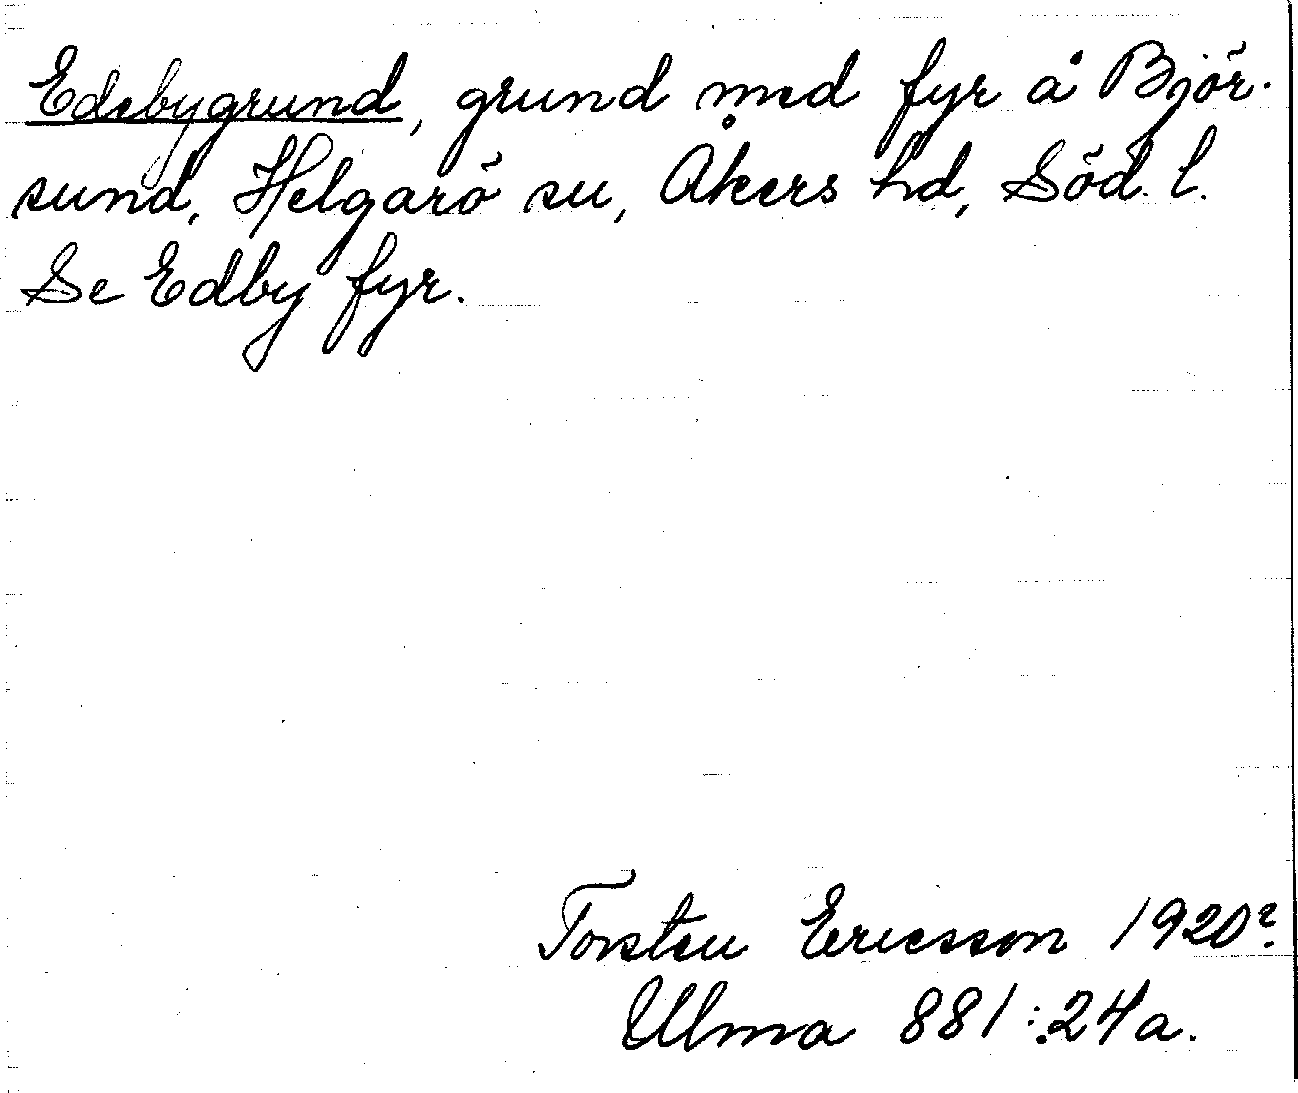 Edebygrund, grund med fyr å Björ-
sund, Helgarö sn, Åkers hd, Söd. l.
Se Edby fyr.
Torsten Ericsson 1920?
Ulma 881:24a.